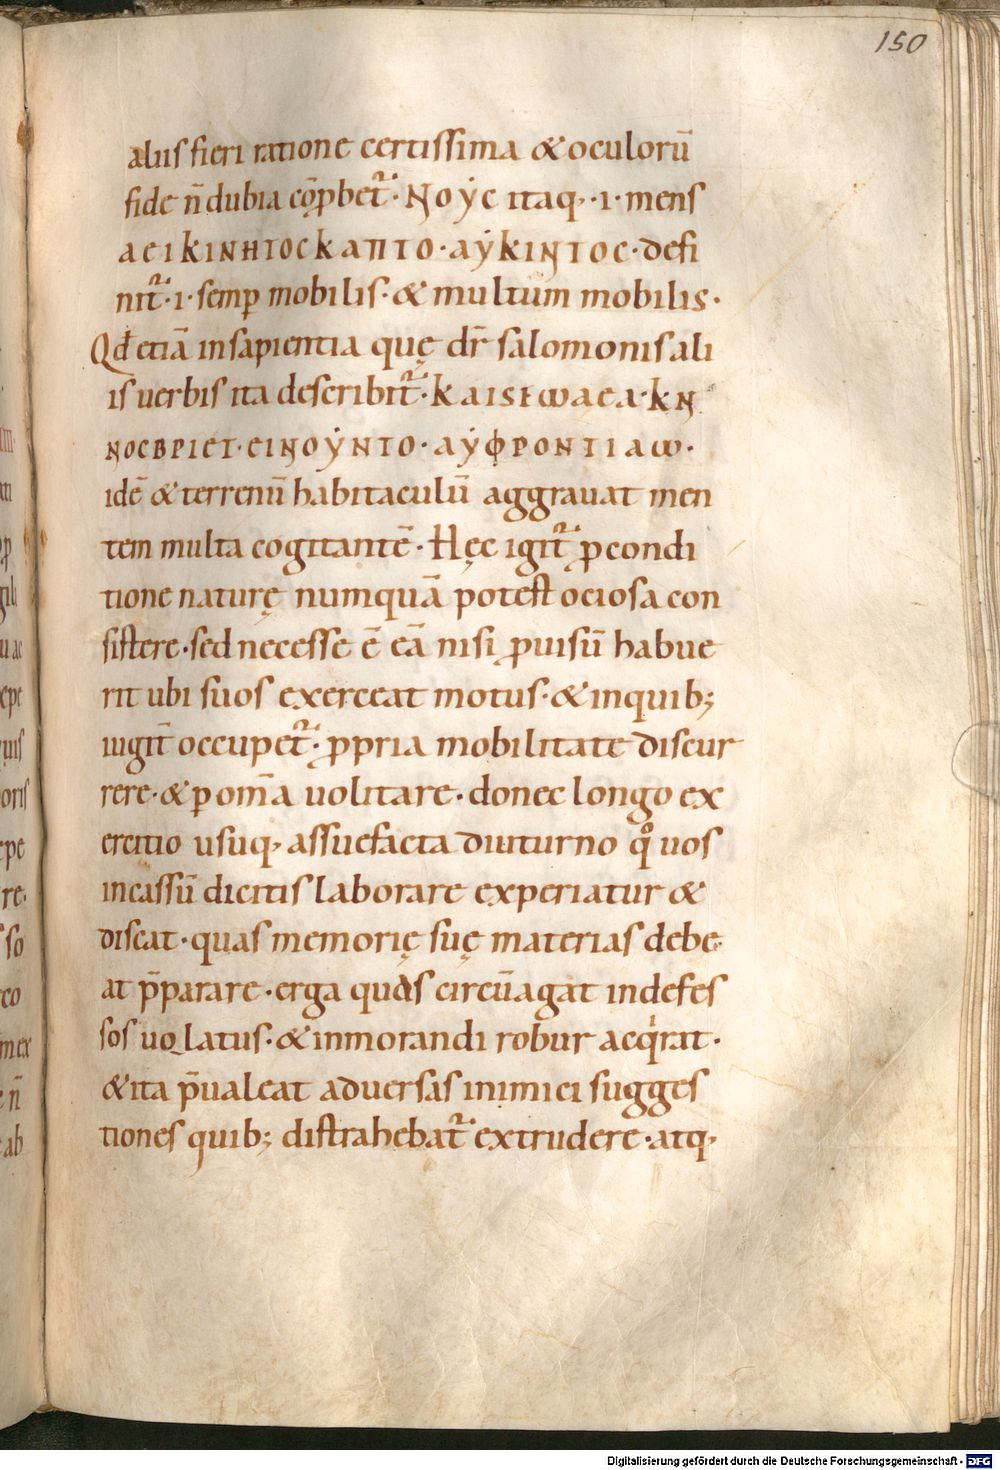 150
aliis fieri ratione certissima & oculorū
fide n̄ dubia cōꝓbet᷑· Νούς itaq;·i· mens
αεικινητοσκαπτο·αύκιντος·defi
nit᷑·i· semꝑ mobilis·& multum mobilis·
Qđ etiā insapientia quę dr̄ salomonis ali
is uerbis ita describit᷑·
idē & terrenū habitaculū aggrauat men
tem multa cogitantē· Hęc igit᷑ ꝓcondi
tione naturę numquā potest ociosa con
sistere· sed necesse ē eā nisi ꝓuisū habue
rit ubi suos exerceat motus·& inquib;
iugit̄ occupet᷑· ꝓpria mobilitate discur
rere·& ꝑ om̄a uolitare· donec longo ex
ercitio usuq; assuefacta diuturno qͦ uos
incassū dicitis laborare experiatur &
discat· quas memorię suę materias debe
at p̄parare· erga quas circūagat indefes
sos uolatus·& inmorandi robur acqͥrat·
& ita p̄ualeat aduersas inimici sugges
tiones quib; distrahebat᷑ extrudere· atq;
Digitalisierung gefördert durch die Deutsche Forschungsgemeinschaft - DFG